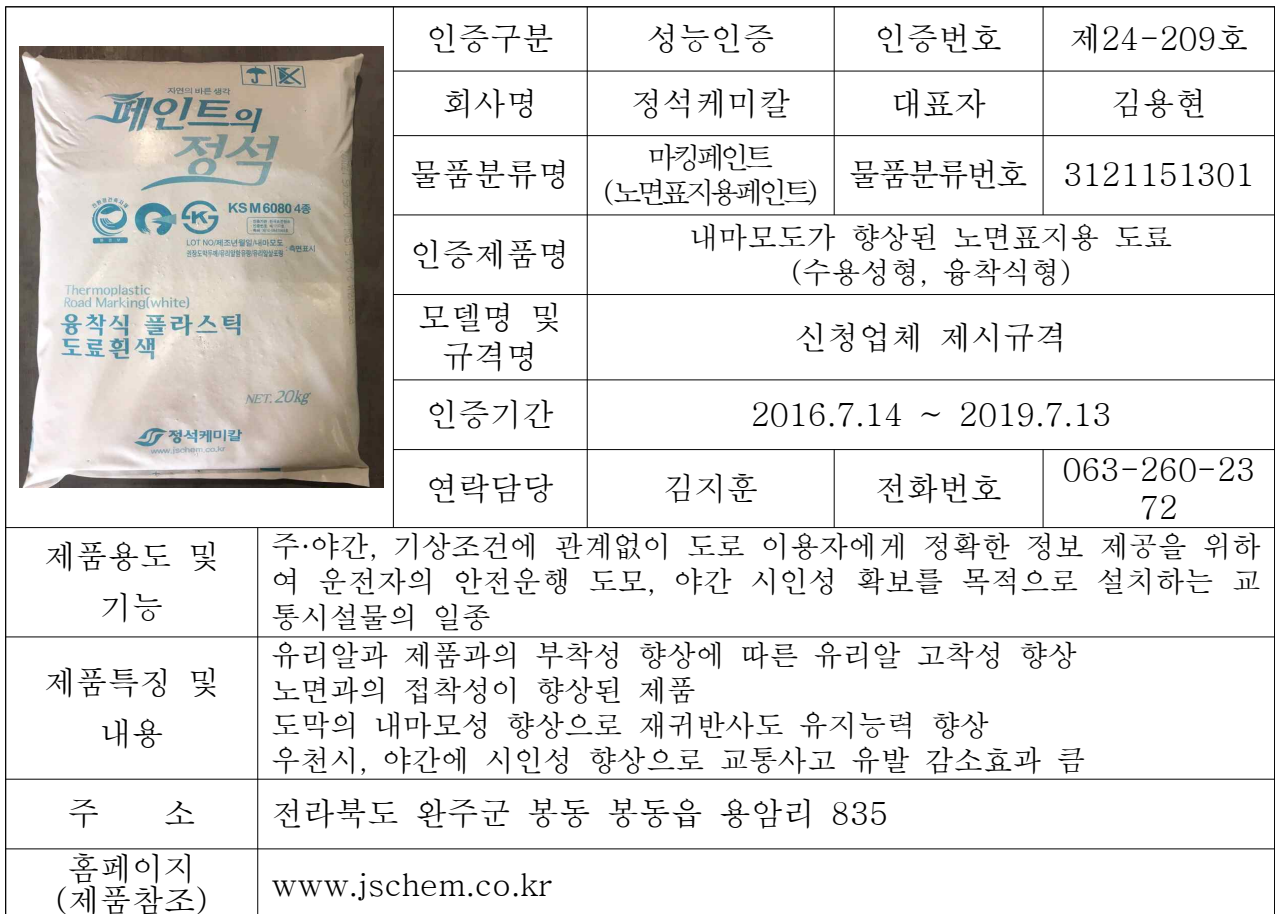 자연의 바른 생각
페인트의
정석
KS M 6080 4종
LOT NO/제조년월일/내마모도
측면표시
Thermoplastic
Road Marking(white)
융착식 플라스틱
도료흰색
NET. 20kg
정석케미칼
www.jschem.co.kr
인증구분 성능인증 인증번호 제24-209호
회사명 정석케미칼 대표자 김용현
물품분류명 마킹페인트
(노면표지용페인트) 물품분류번호 3121151301
인증제품명 내마모도가 향상된 노면표지용 도료
(수용성형, 융착식형)
모델명 및
규격명 신청업체 제시규격
인증기간 2016.7.14 ~ 2019.7.13
연락담당 김지훈 전화번호 063-260-23
72
제품용도 및
기능
주·야간, 기상조건에 관계없이 도로 이용자에게 정확한 정보 제공을 위하
여 운전자의 안전운행 도모, 야간 시인성 확보를 목적으로 설치하는 교
통시설물의 일종
제품특징 및
내용
유리알과 제품과의 부착성 향상에 따른 유리알 고착성 향상
노면과의 접착성이 향상된 제품
도막의 내마모성 향상으로 재귀반사도 유지능력 향상
우천시, 야간에 시인성 향상으로 교통사고 유발 감소효과 큼
주 소 전라북도 완주군 봉동 봉동읍 용암리 835
홈페이지
(제품참조) www.jschem.co.kr